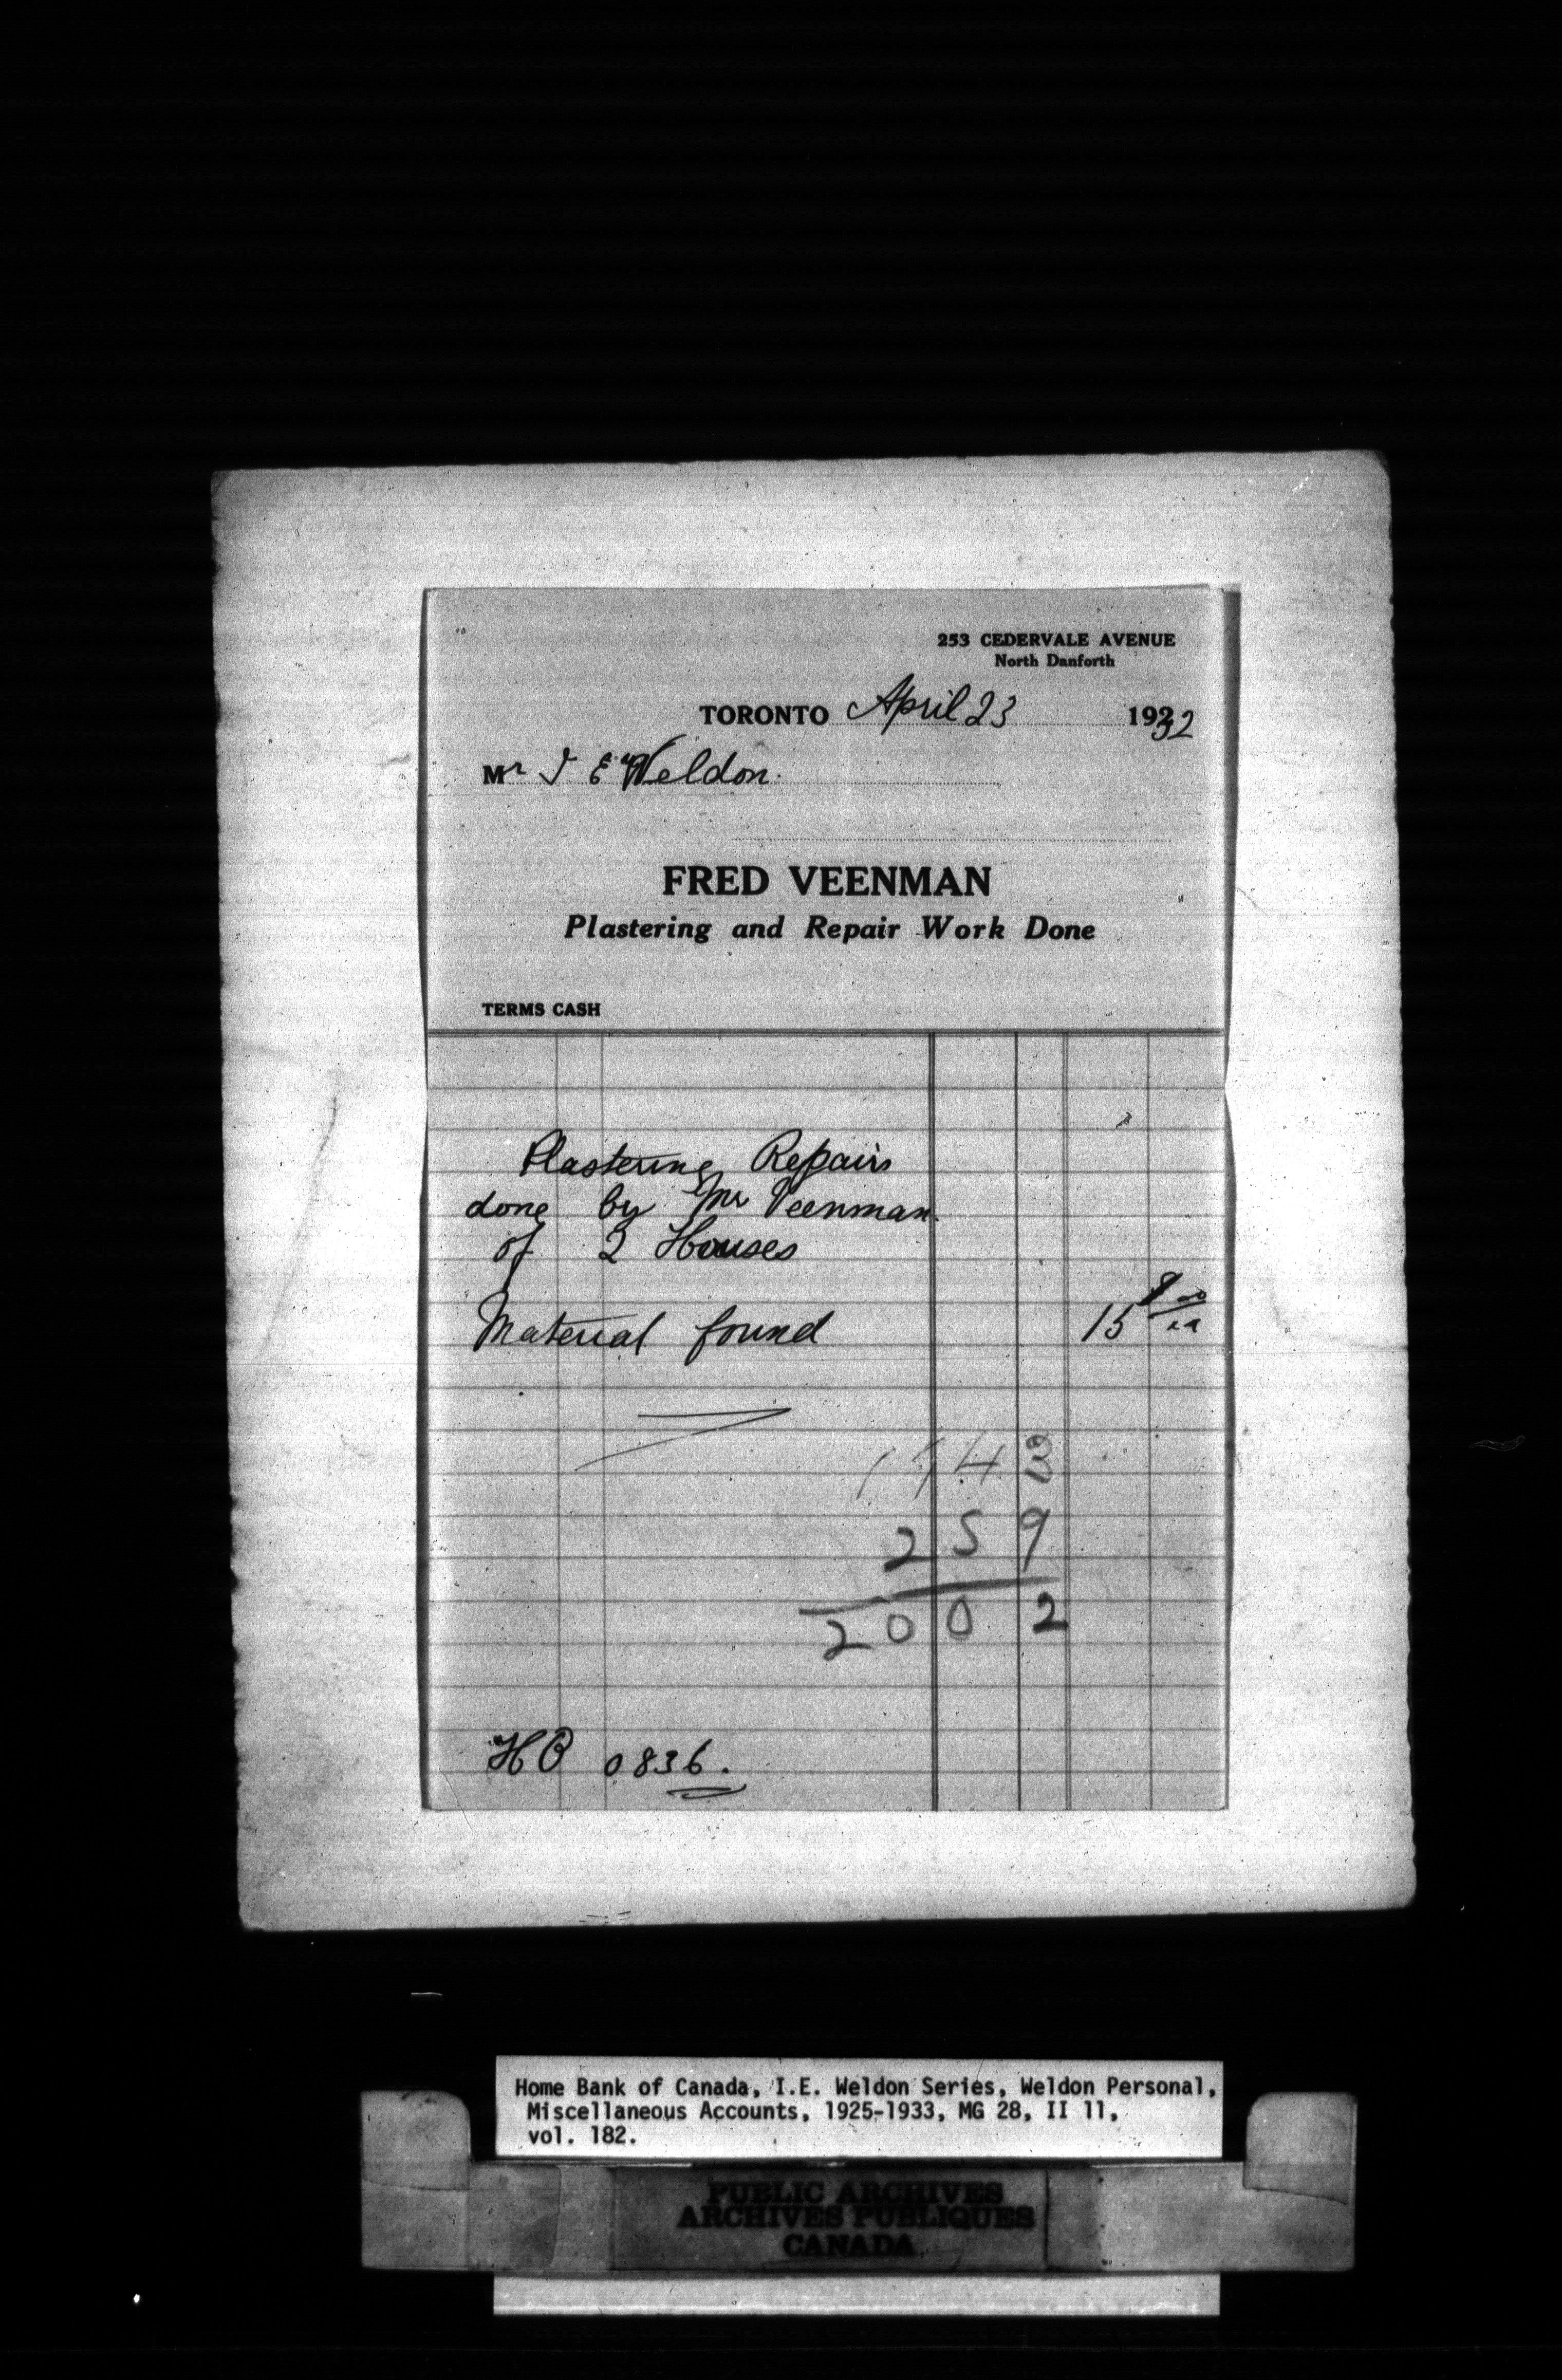 253 CEDERVALE AVENUE
North Danforth
TORONTO April 23 1932
Mr I E Weldon.
FRED VEENMAN
Plastering and Repair Work Done
TERMS CASH
Plastering Repairs
done by Mr Veenman
of 2 Houses
Material found 15
1743
259
2002
HO 0836.
Home Bank of Canada, I.E. Weldon Series, Weldon Personal,
Miscellaneous Accounts, 1925-1933, MG 28, II 11,
vol. 182.
PUBLIC ARCHIVES
ARCHIVES PUBLIQUES
CANADA